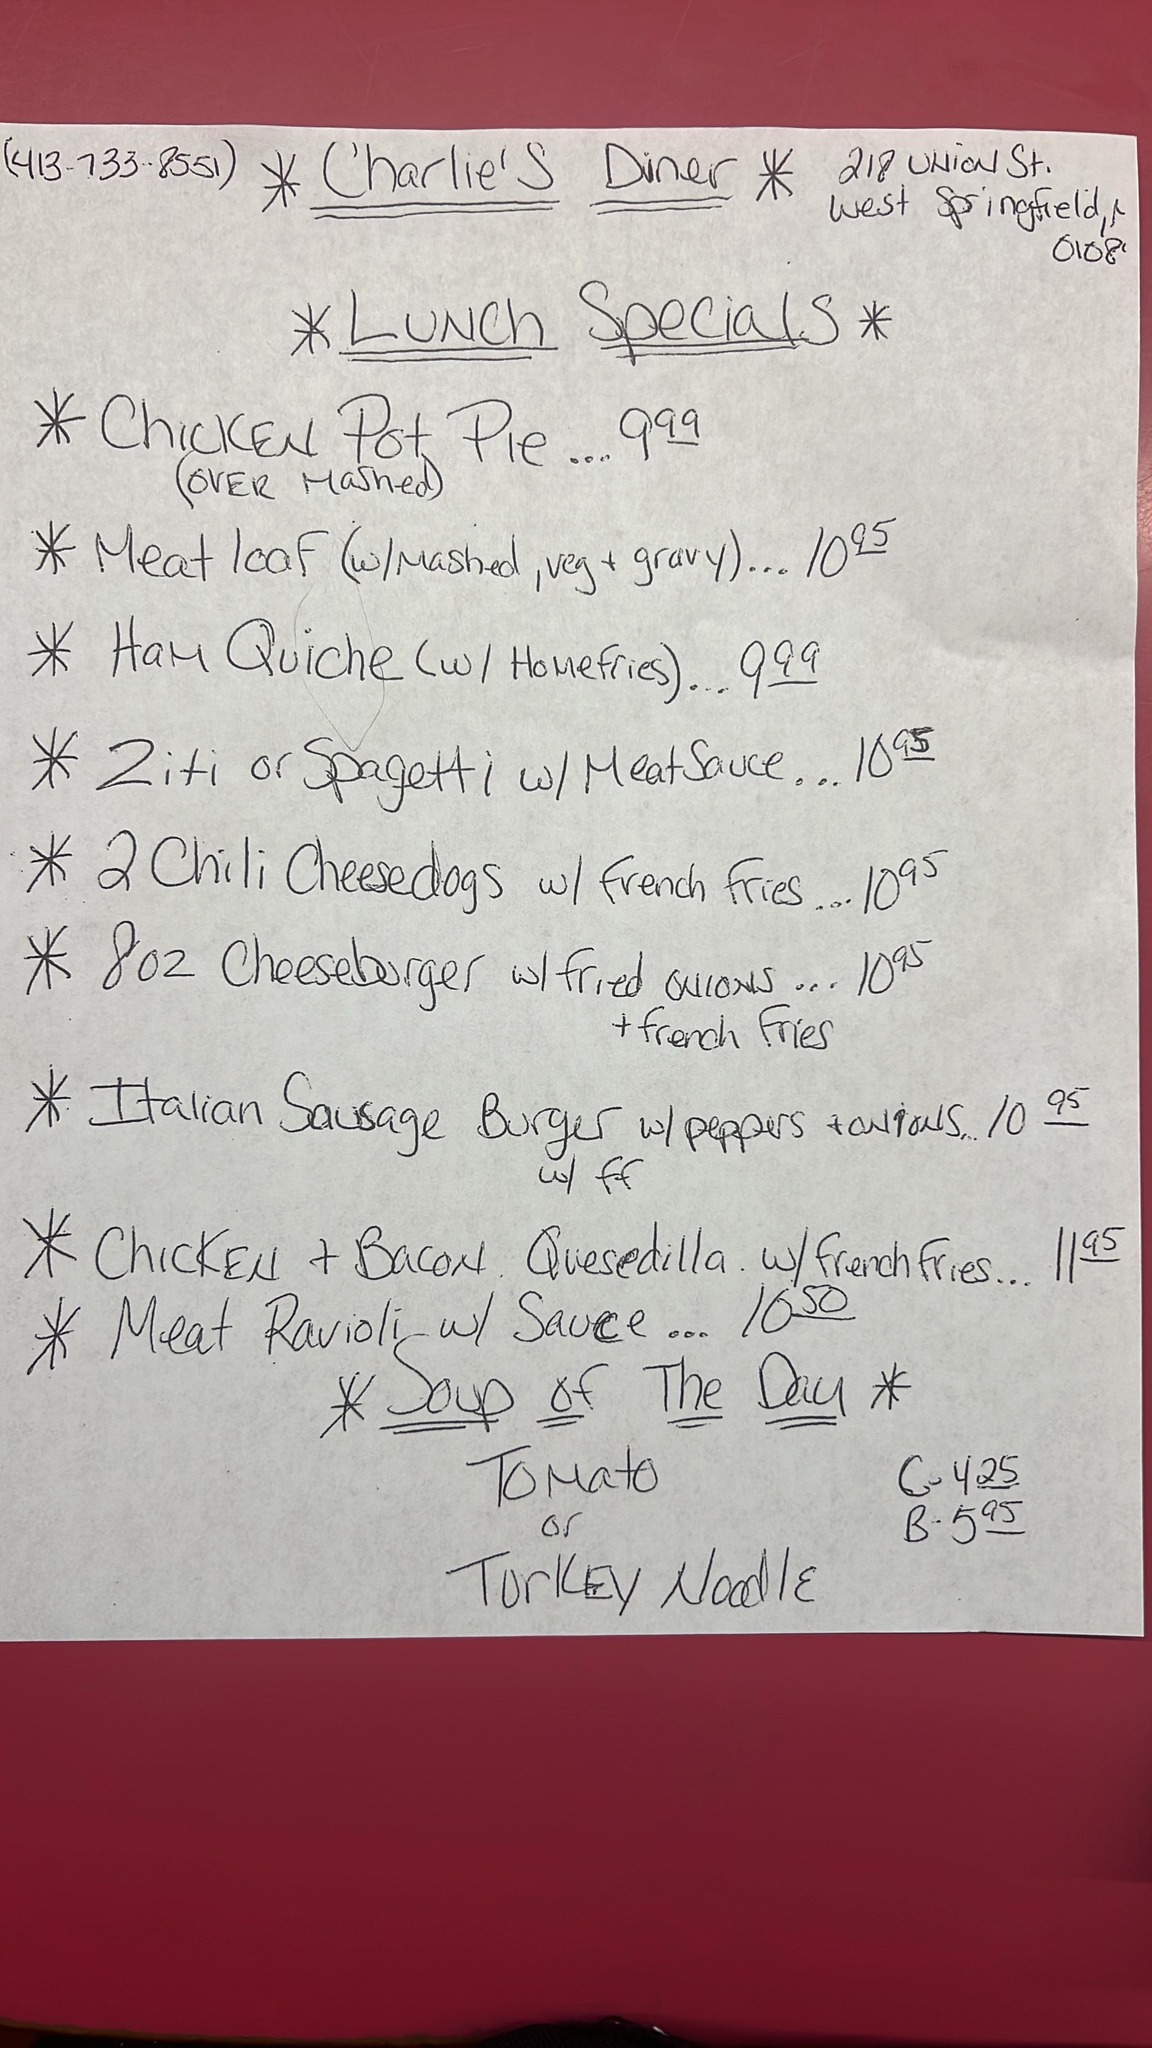 (413-733-8551) * Charlie's Diner * 218 Union St.
West Springfield,
0108
* Lunch Specials *
* Chicken Pot Pie ... 9.99
(over Mashed)
* Meatloaf (w/Mashed, veg + gravy) ... 10.95
* Ham Quiche (w/ Homefries) ... 9.99
* Ziti or Spagetti w/ Meat Sauce ... 10.95
* 2 Chili Cheesedogs w/ french fries ... 10.95
* 8oz Cheeseburger w/ fried onions ... 10.95
+ french fries
* Italian Sausage Burger w/ peppers + onions... 10.95
w/ ff
* Chicken + Bacon Quesedilla w/ french fries ... 11.95
* Meat Ravioli w/ Sauce ... 10.50
* Soup of The Day *
Tomato C-4.25
or B-5.95
Turkey Noodle